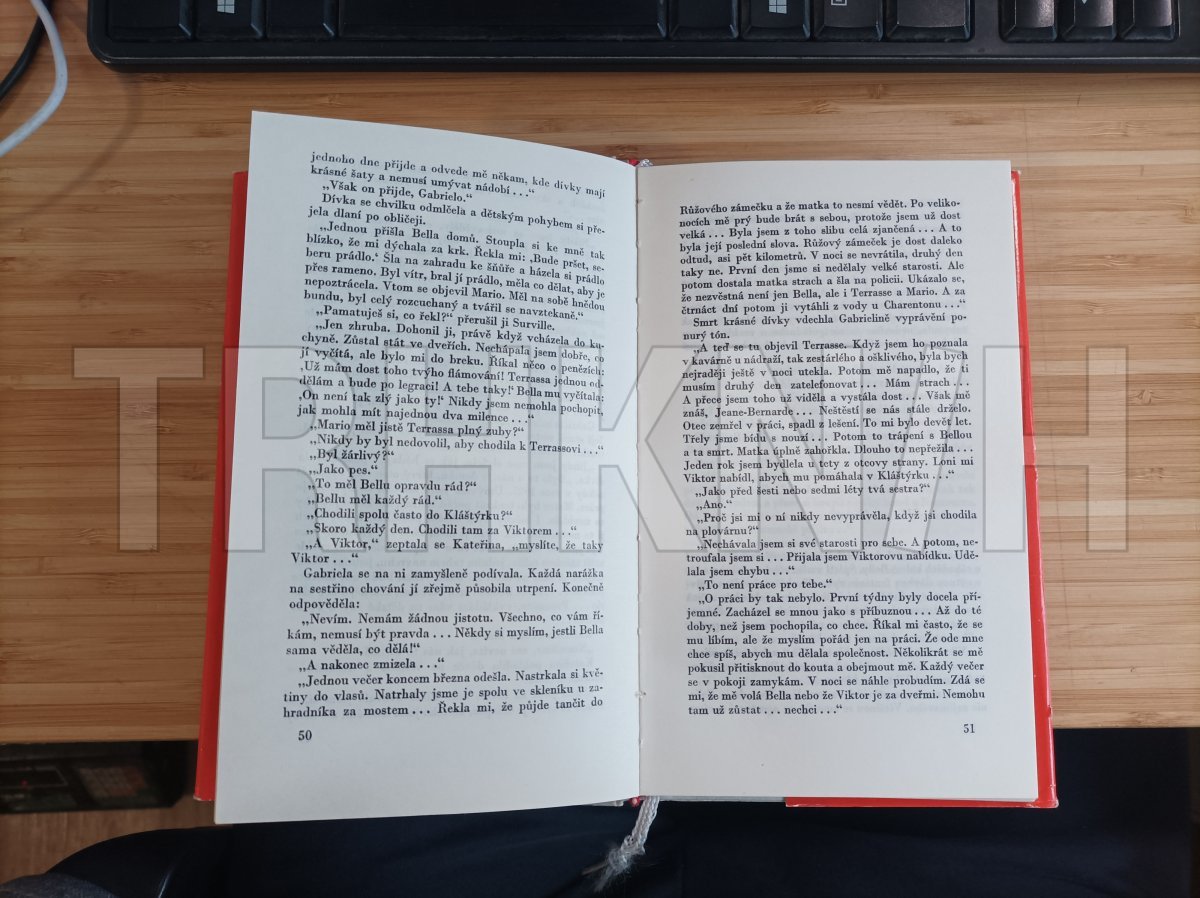 jednoho dne přijde a odvede mě někam, kde dívky mají
krásné šaty a nemusí umývat nádobí . . .“
„Však on přijde, Gabrielo.“
Dívka se chvilku odmlčela a dětským pohybem si pře-
jela dlaní po obličeji.
„Jednou přišla Bella domů. Stoupla si ke mně tak
blízko, že mi dýchala za krk. Řekla mi: ‚Bude pršet, se-
beru prádlo.‘ Šla na zahradu ke šňůře a házela si prádlo
přes rameno. Byl vítr, bral jí prádlo, měla co dělat, aby je
nepoztrácela. Vtom se objevil Mario. Měl na sobě hnědou
bundu, byl celý rozcuchaný a tvářil se navztekaně.“
„Pamatuješ si, co řekl?“ přerušil ji Surville.
„Jen zhruba. Dohonil ji, právě když vcházela do ku-
chyně. Zůstal stát ve dveřích. Nechápala jsem dobře, co
jí vyčítá, ale bylo mi do breku. Říkal něco o penězích:
‚Už mám dost toho tvýho flámování! Terrassa jednou od-
dělám a bude po legraci! A tebe taky!‘ Bella mu vyčítala:
‚On není tak zlý jako ty!‘ Nikdy jsem nemohla pochopit,
jak mohla mít najednou dva milence . . .“
„Mario měl jistě Terrassa plný zuby?“
„Nikdy by byl nedovolil, aby chodila k Terrassovi . . .“
„Byl žárlivý?“
„Jako pes.“
„To měl Bellu opravdu rád?“
„Bellu měl každý rád.“
„Chodili spolu často do Kláštýrku?“
„Skoro každý den. Chodili tam za Viktorem . . .“
„A Viktor,“ zeptala se Kateřina, „myslíte, že taky
Viktor . . .“
Gabriela se na ni zamyšleně podívala. Každá narážka
na sestřino chování jí zřejmě působila utrpení. Konečně
odpověděla:
„Nevím. Nemám žádnou jistotu. Všechno, co vám ří-
kám, nemusí být pravda . . . Někdy si myslím, jestli Bella
sama věděla, co dělá!“
„A nakonec zmizela . . .“
„Jednou večer koncem března odešla. Nastrkala si kvě-
tiny do vlasů. Natrhaly jsme je spolu ve skleníku u za-
hradníka za mostem . . . Řekla mi, že půjde tančit do
50
Růžového zámečku a že matka to nesmí vědět. Po veliko-
nocích mě prý bude brát s sebou, protože jsem už dost
velká . . . Byla jsem z toho slibu celá zjančená . . . A to
byla její poslední slova. Růžový zámeček je dost daleko
odtud, asi pět kilometrů. V noci se nevrátila, druhý den
taky ne. První den jsme si nedělaly velké starosti. Ale
potom dostala matka strach a šla na policii. Ukázalo se,
že nezvěstná není jen Bella, ale i Terrasse a Mario. A za
čtrnáct dní potom ji vytáhli z vody u Charentonu . . .“
Smrt krásné dívky vdechla Gabrielině vyprávění po-
nurý tón.
„A teď se tu objevil Terrasse. Když jsem ho poznala
v kavárně u nádraží, tak zestárlého a ošklivého, byla bych
nejraději ještě v noci utekla. Potom mě napadlo, že ti
musím druhý den zatelefonovat . . . Mám strach . . .
A přece jsem toho už viděla a vystála dost . . . Však mě
znáš, Jeane-Bernarde . . . Neštěstí se nás stále drželo.
Otec zemřel v práci, spadl z lešení. To mi bylo devět let.
Třely jsme bídu s nouzí . . . Potom to trápení s Bellou
a ta smrt. Matka úplně zahořkla. Dlouho to nepřežila . . .
Jeden rok jsem bydlela u tety z otcovy strany. Loni mi
Viktor nabídl, abych mu pomáhala v Kláštýrku . . .“
„Jako před šesti nebo sedmi léty tvá sestra?“
„Ano.“
„Proč jsi mi o ní nikdy nevyprávěla, když jsi chodila
na plovárnu?“
„Nechávala jsem si své starosti pro sebe. A potom, ne-
troufala jsem si . . . Přijala jsem Viktorovu nabídku. Udě-
lala jsem chybu . . .“
„To není práce pro tebe.“
„O práci by tak nebylo. První týdny byly docela pří-
jemné. Zacházel se mnou jako s příbuznou . . . Až do té
doby, než jsem pochopila, co chce. Říkal mi často, že se
mu líbím, ale že myslím pořád jen na práci. Že ode mne
chce spíš, abych mu dělala společnost. Několikrát se mě
pokusil přitisknout do kouta a obejmout mě. Každý večer
se v pokoji zamykám. V noci se náhle probudím. Zdá se
mi, že mě volá Bella nebo že Viktor je za dveřmi. Nemohu
tam už zůstat . . . nechci . . .“
51
TRHKNIH